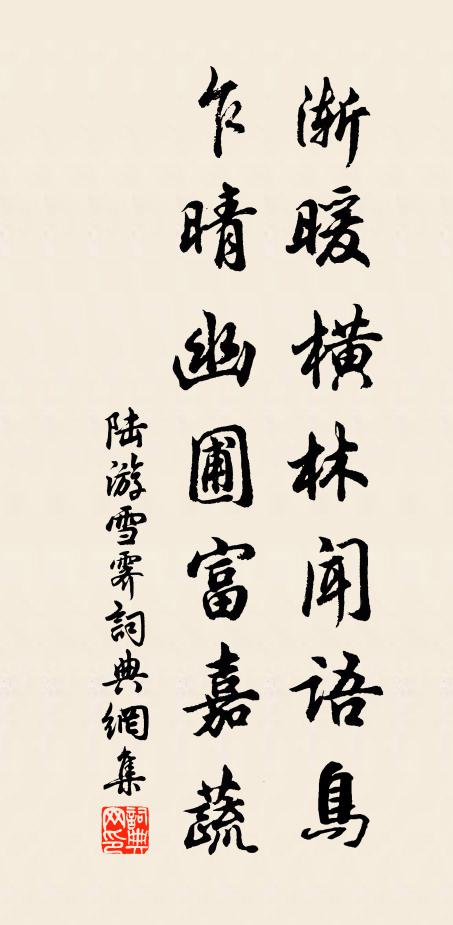 漸暖橫林聞語鳥
乍晴幽圃富嘉蔬
陸游雪霽詞典網集
詞典网印